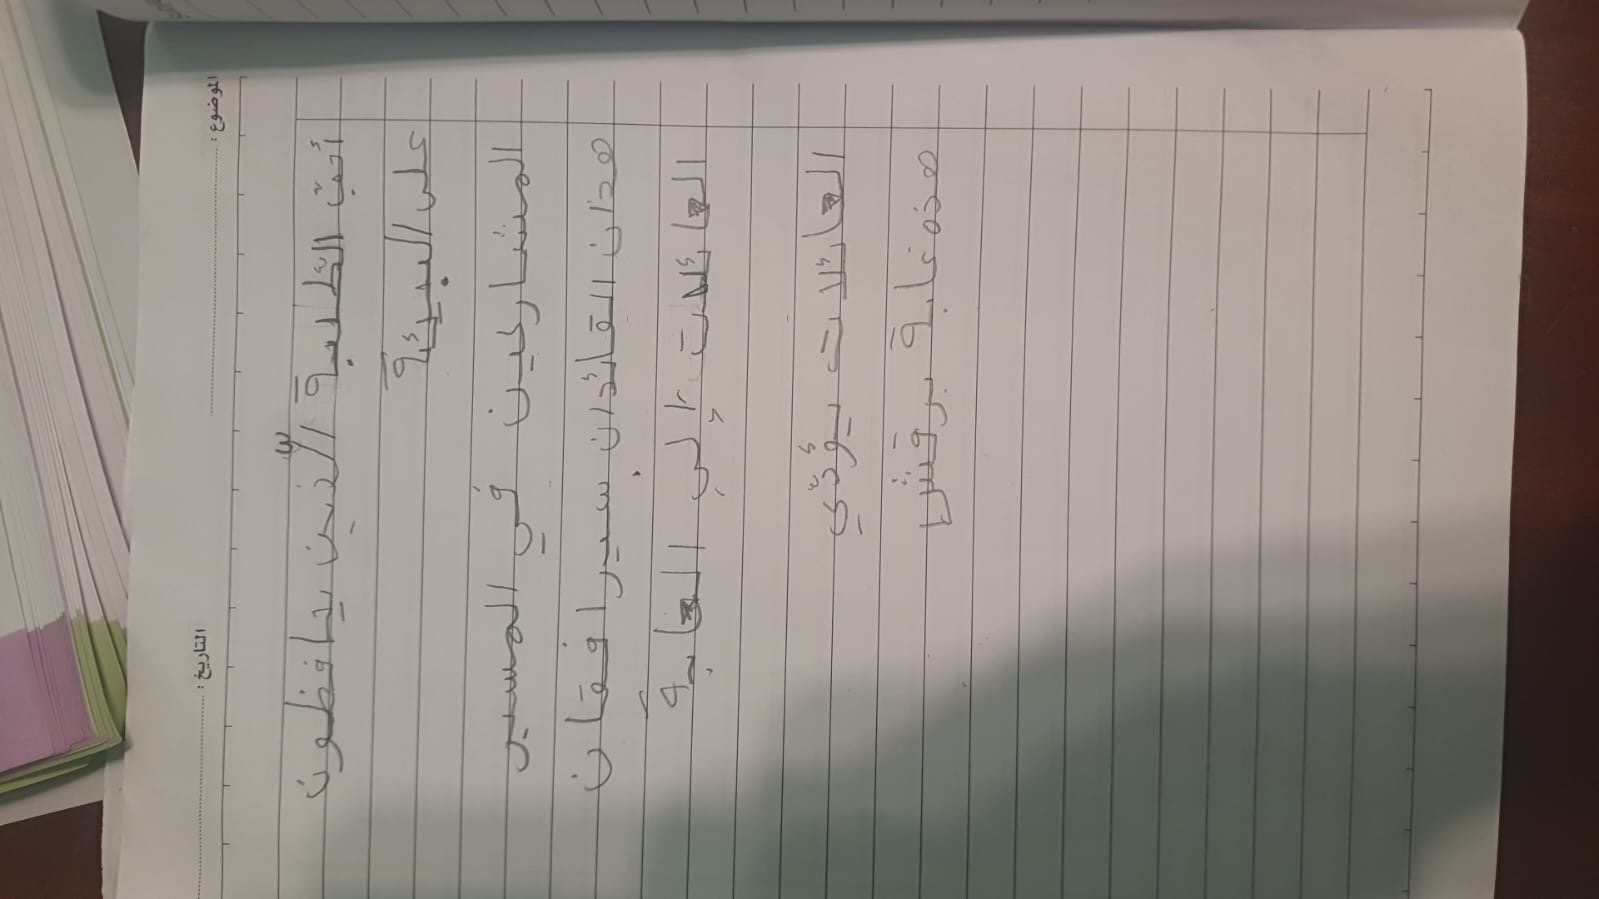 الموضوع : التاريخ :
أُحِبّ الطّلبةَ الّذين يحافظونَ
على البيئةَ
المشاركين في المسير
هذان القائدان سيرافقان
العائلات إلى الغابةَ
العائلات يؤدّي
هذه غابة برقش